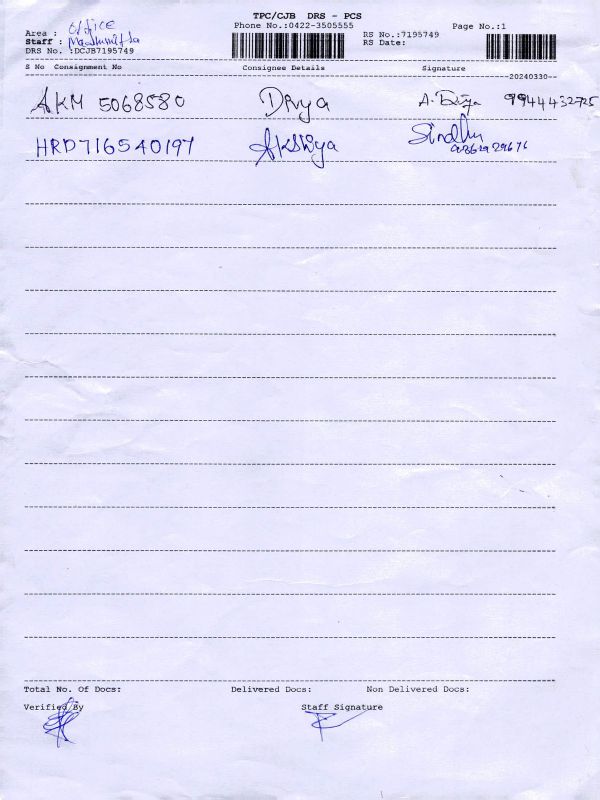 TPC/CJB DRS - PCS
Phone No.:0422-3505555
Page No.:1
Area : office
Staff :
DRS No. :DCJB7195749
RS No.:7195749
RS Date:
S No Consignment No Consignee Details Signature
--20240330--
AKM 5068580 Divya 9944432725
HRD716540197 Akshiya Sindhu
Total No. Of Docs: Delivered Docs: Non Delivered Docs:
Verified By Staff Signature